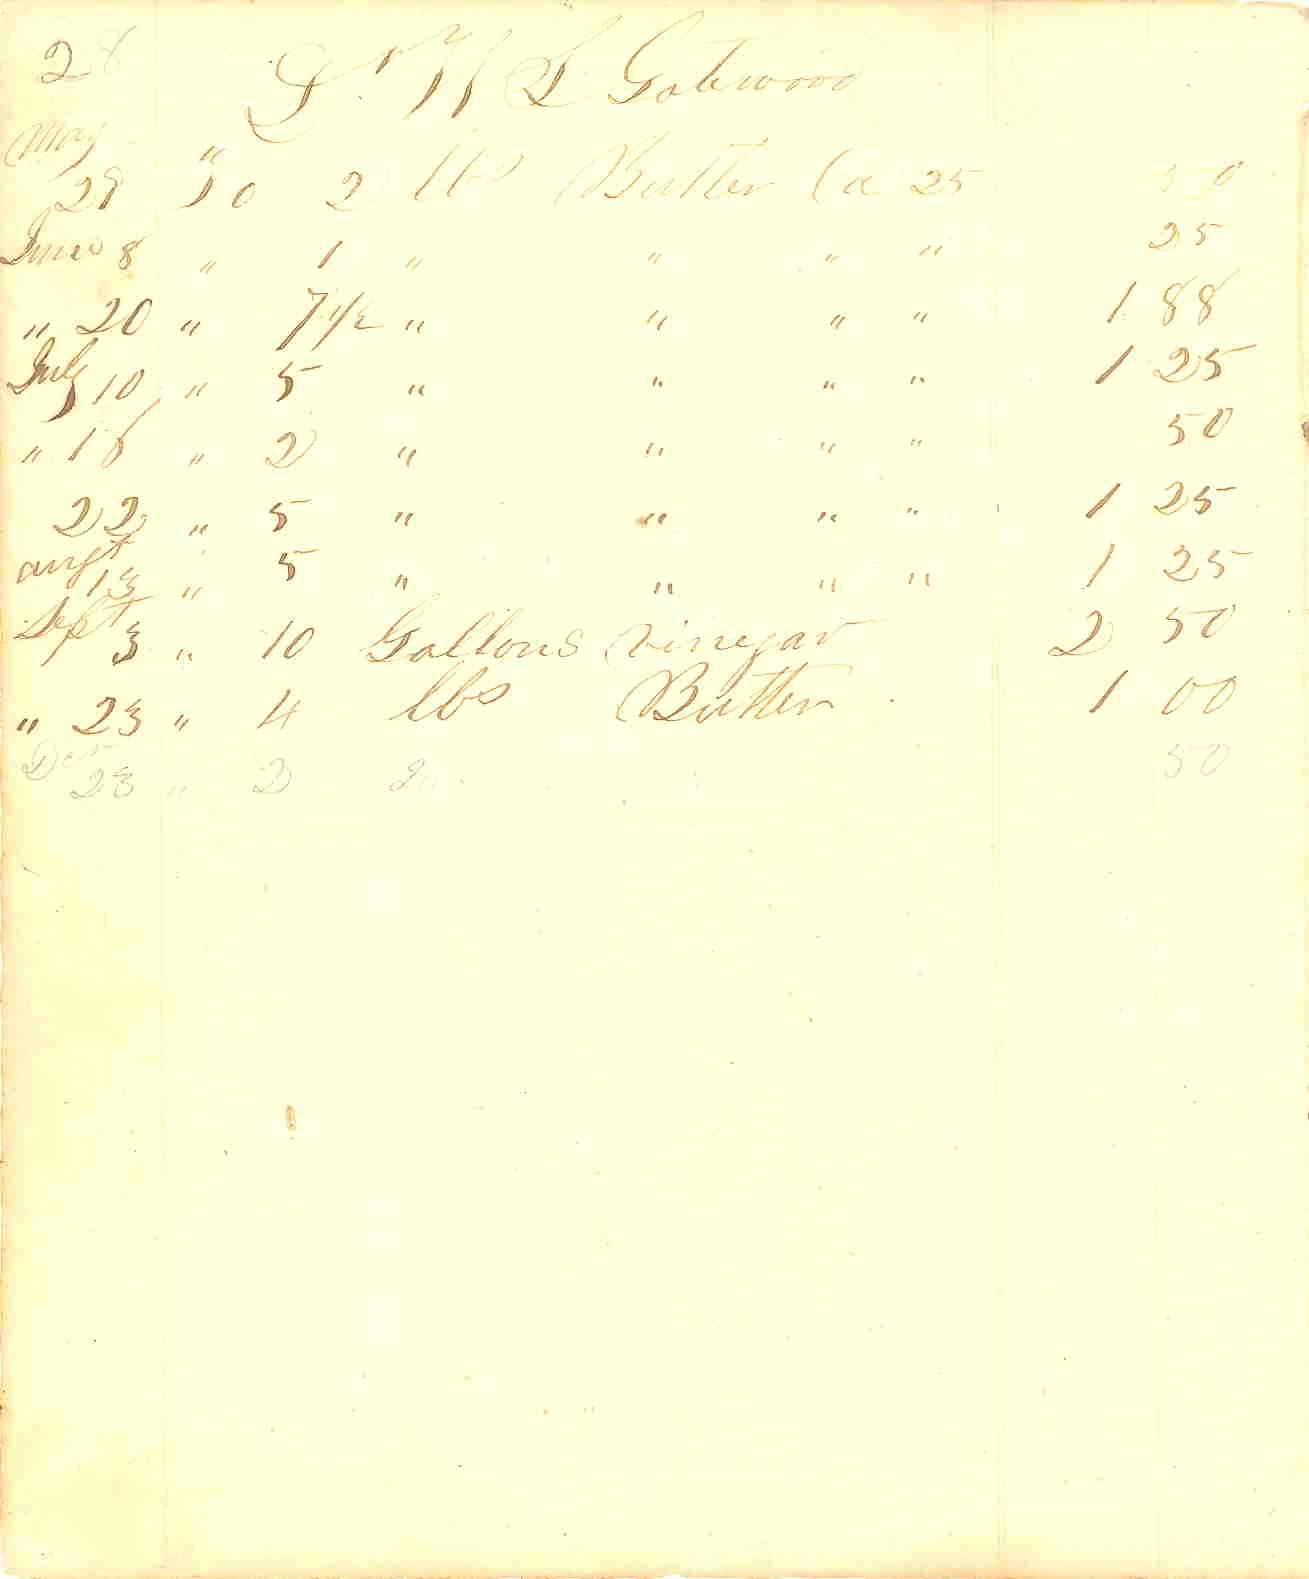 28
Dr W S Gatewood
May "
28 To 2 lbs Butter (a 25 50
June 8 " 1 " " " " 25
" 20 " 7 1/2 " " " " 1 88
July 10 " 5 " " " " 1 25
" 18 " 2 " " " " 50
22 " 5 " " " " 1 25
augt 13 " 5 " " " " 1 25
Sept 3 " 10 Gallons vinegar 2 50
" 23 " 4 lbs Butter 1 00
23 " 2 50